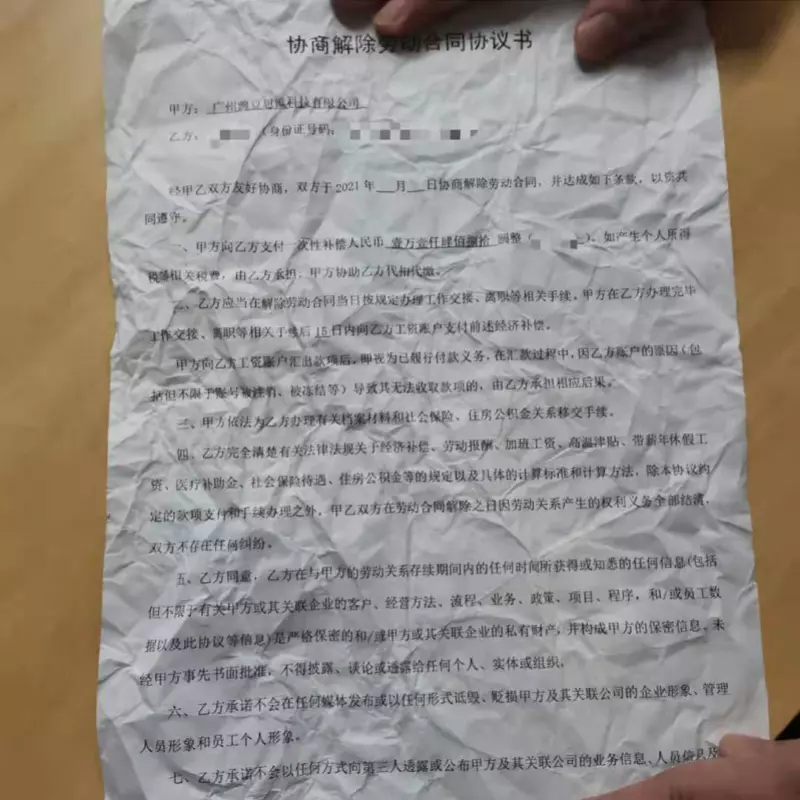 协商解除劳动合同协议书
甲方：广州 科技有限公司
乙方： （身份证号码：
经甲乙双方友好协商，双方于2021年___月___日协商解除劳动合同，并达成如下条款，以资共
同遵守。
一、甲方向乙方支付一次性补偿人民币 壹万壹仟肆佰捌拾 圆整（ ）。如产生个人所得
税等相关税费，由乙方承担，甲方协助乙方代扣代缴。
二、乙方应当在解除劳动合同当日按规定办理工作交接、离职等相关手续。甲方在乙方办理完毕
工作交接、离职等相关手续后15日内向乙方工资账户支付前述经济补偿。
甲方向乙方工资账户汇出款项后，即视为已履行付款义务，在汇款过程中，因乙方账户的原因（包
括但不限于账号被注销、被冻结等）导致其无法收取款项的，由乙方承担相应后果。
三、甲方依法为乙方办理有关档案材料和社会保险、住房公积金关系移交手续。
四、乙方完全清楚有关法律法规关于经济补偿、劳动报酬、加班工资、高温津贴、带薪年休假工
资、医疗补助金、社会保险待遇、住房公积金等的规定以及具体的计算标准和计算方法，除本协议约
定的款项支付和手续办理之外，甲乙双方在劳动合同解除之日因劳动关系产生的权利义务全部结清，
双方不存在任何纠纷。
五、乙方同意，乙方在与甲方的劳动关系存续期间内的任何时间所获得或知悉的任何信息(包括
但不限于有关甲方或其关联企业的客户、经营方法、流程、业务、政策、项目、程序，和/或员工数
据以及此协议等信息)是严格保密的和/或甲方或其关联企业的私有财产，并构成甲方的保密信息。未
经甲方事先书面批准，不得披露、谈论或透露给任何个人、实体或组织。
六、乙方承诺不会在任何媒体发布或以任何形式诋毁、贬损甲方及其关联公司的企业形象、管理
人员形象和员工个人形象。
七、乙方承诺不会以任何方向第三人透露或公布甲方及其关联公司的业务信息、人员信息及